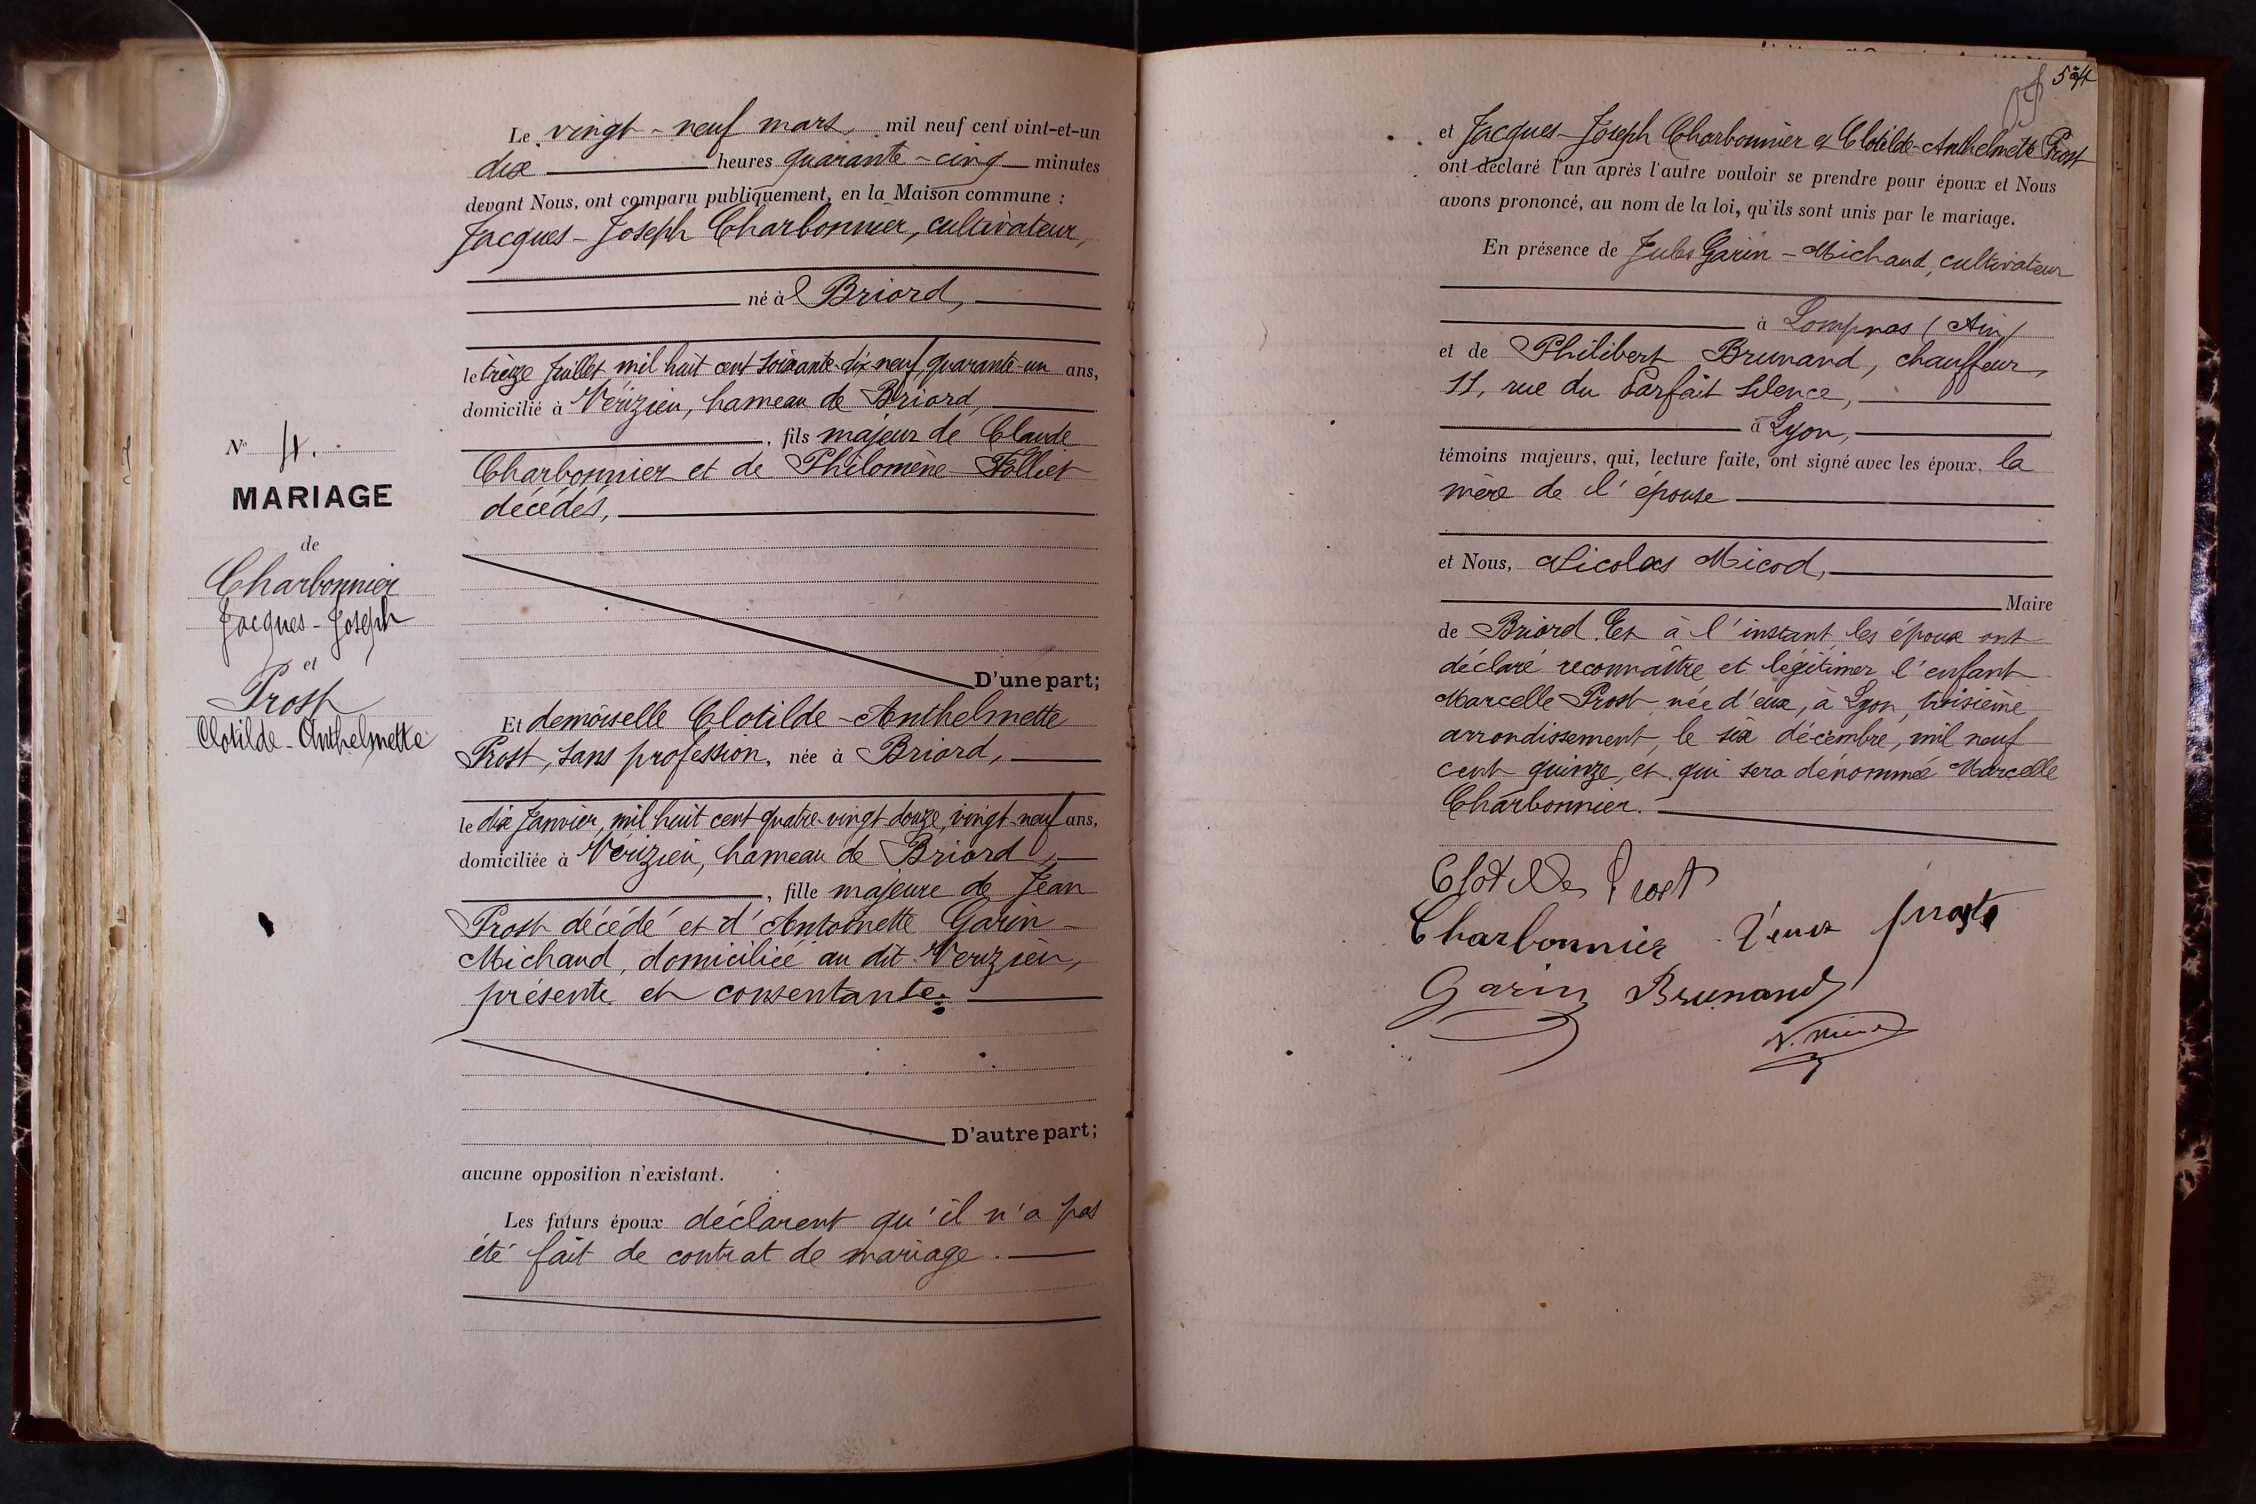 Le vingt-neuf mars, mil neuf cent vint-et-un
dix heures quarante-cinq minutes
devant Nous, ont comparu publiquement, en la Maison commune :
Jacques-Joseph Charbonnier, cultivateur,
né à Briord,
le treize Juillet mil huit cent soixante-dix neuf, quarante-un ans,
domicilié à Vérizieu, hameau de Briord,
, fils majeur de Claude
Charbonnier et de Philomène Folliet
décédés,
D'une part;
Et demoiselle Clotilde-Anthelmette
Prost, sans profession, née à Briord,
le dix Janvier, mil huit cent quatre-vingt douze, vingt-neuf ans,
domiciliée à Vérizieu, hameau de Briord,
, fille majeure de Jean
Prost décédé et d'Antoinette Garin-
Michaud, domiciliée au dit Verizieu,
présente et consentante.
D'autre part;
aucune opposition n'existant.
Les futurs époux déclarent qu'il n'a pas
été fait de contrat de mariage.
N° 4.
MARIAGE
de
Charbonnier
Jacques-Joseph
et
Prost
Clotilde-Anthelmette
et Jacques-Joseph Charbonnier et Clotilde-Anthelmette Prost
ont déclaré l'un après l'autre vouloir se prendre pour époux et Nous
avons prononcé, au nom de la loi, qu'ils sont unis par le mariage.
En présence de Jules Garin-Michaud, cultivateur
à Lompnas (Ain)
et de Philibert Brunand, chauffeur,
11, rue du Parfait Silence,
à Lyon,
témoins majeurs, qui, lecture faite, ont signé avec les époux, la
mère de l'épouse
et Nous, Nicolas Micod,
Maire
de Briord. Et à l'instant les époux ont
déclaré reconnaître et légitimer l'enfant
Marcelle Prost née d'eux, à Lyon, troisième
arrondissement, le six décembre, mil neuf
cent quinze, et qui sera dénommée Marcelle
Charbonnier.
Clotilde Prost
Charbonnier Veuve Prost
Garin Brunand